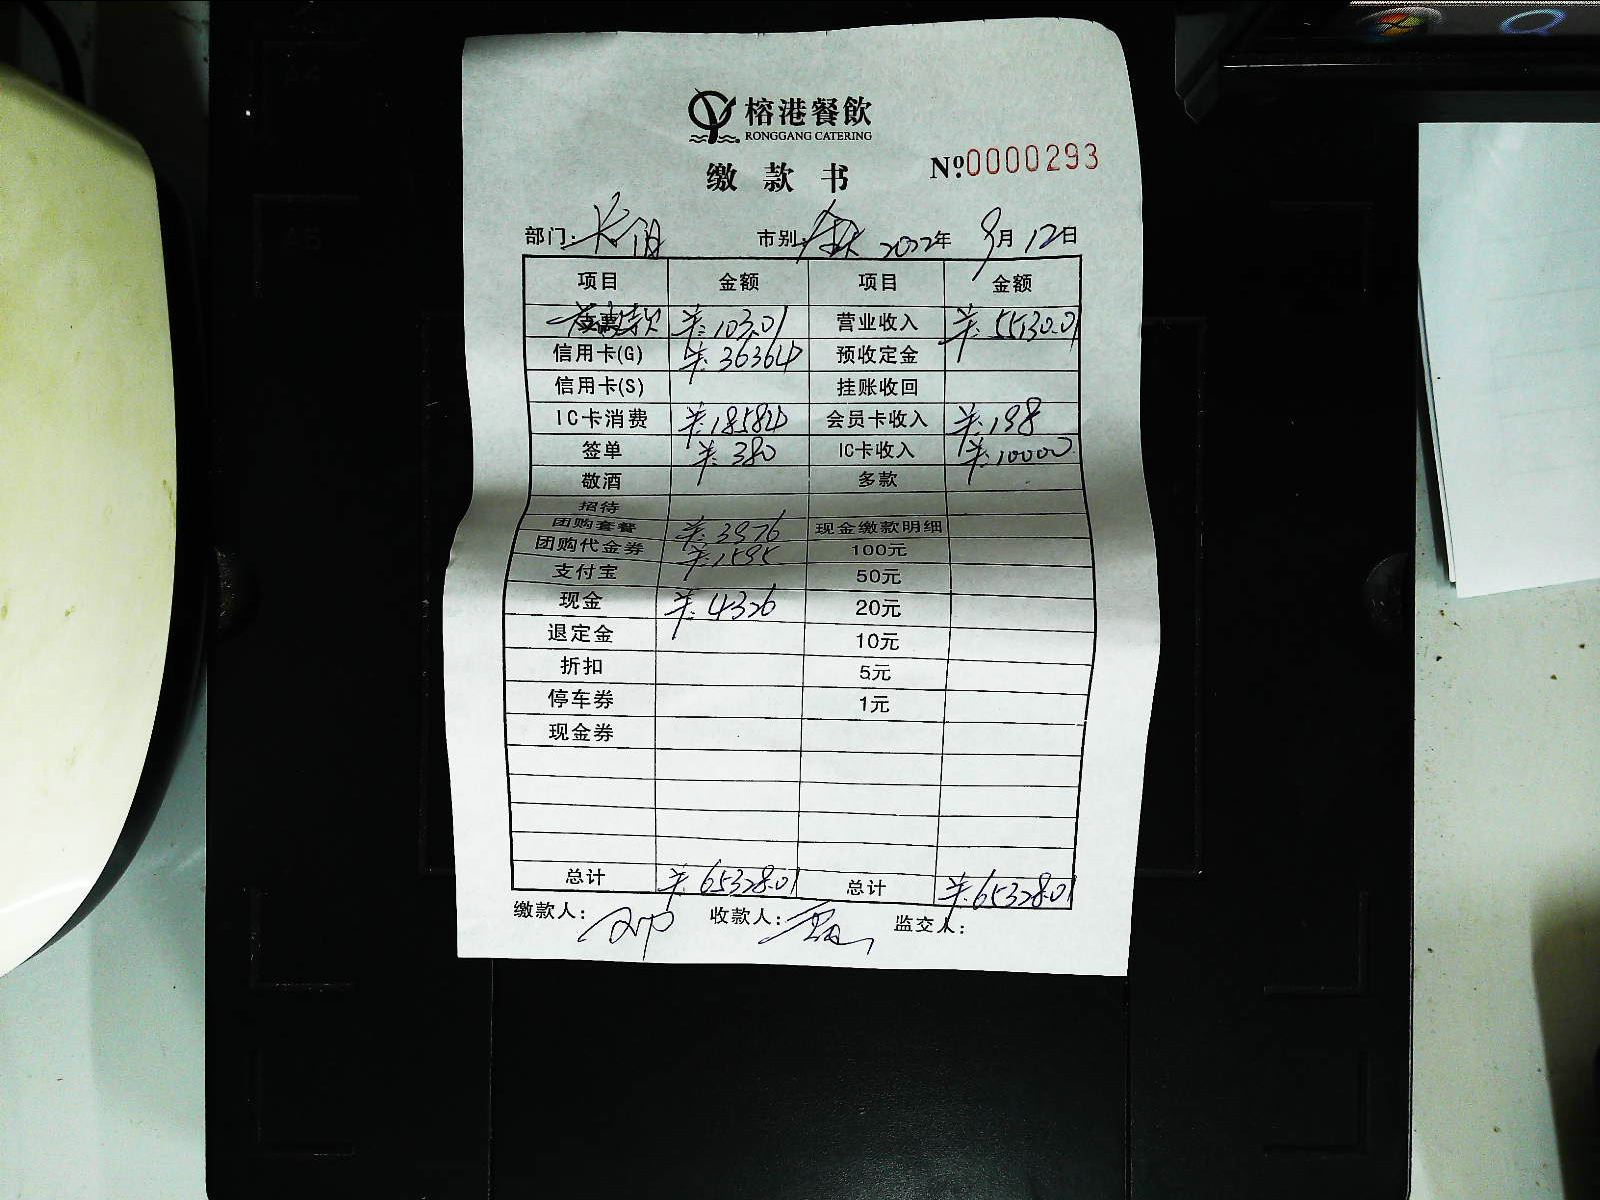 榕港餐飲
RONGGANG CATERING
缴款书 №0000293
部门: 市别: 2022年 9月 12日
项目 金额 项目 金额
¥:103.01 营业收入 ¥:55130.01
信用卡(G) ¥:36364 预收定金
信用卡(S) 挂账收回
IC卡消费 ¥:18584 会员卡收入 ¥:198
签单 ¥:380 IC卡收入 ¥:10000
敬酒 多款
招待
团购套餐 ¥:3976 现金缴款明细
团购代金券 ¥:1595 100元
支付宝 50元
现金 ¥:4326 20元
退定金 10元
折扣 5元
停车券 1元
现金券
总计 ¥:65328.01 总计 ¥:65328.01
缴款人: 收款人: 监交人:
A4
A5